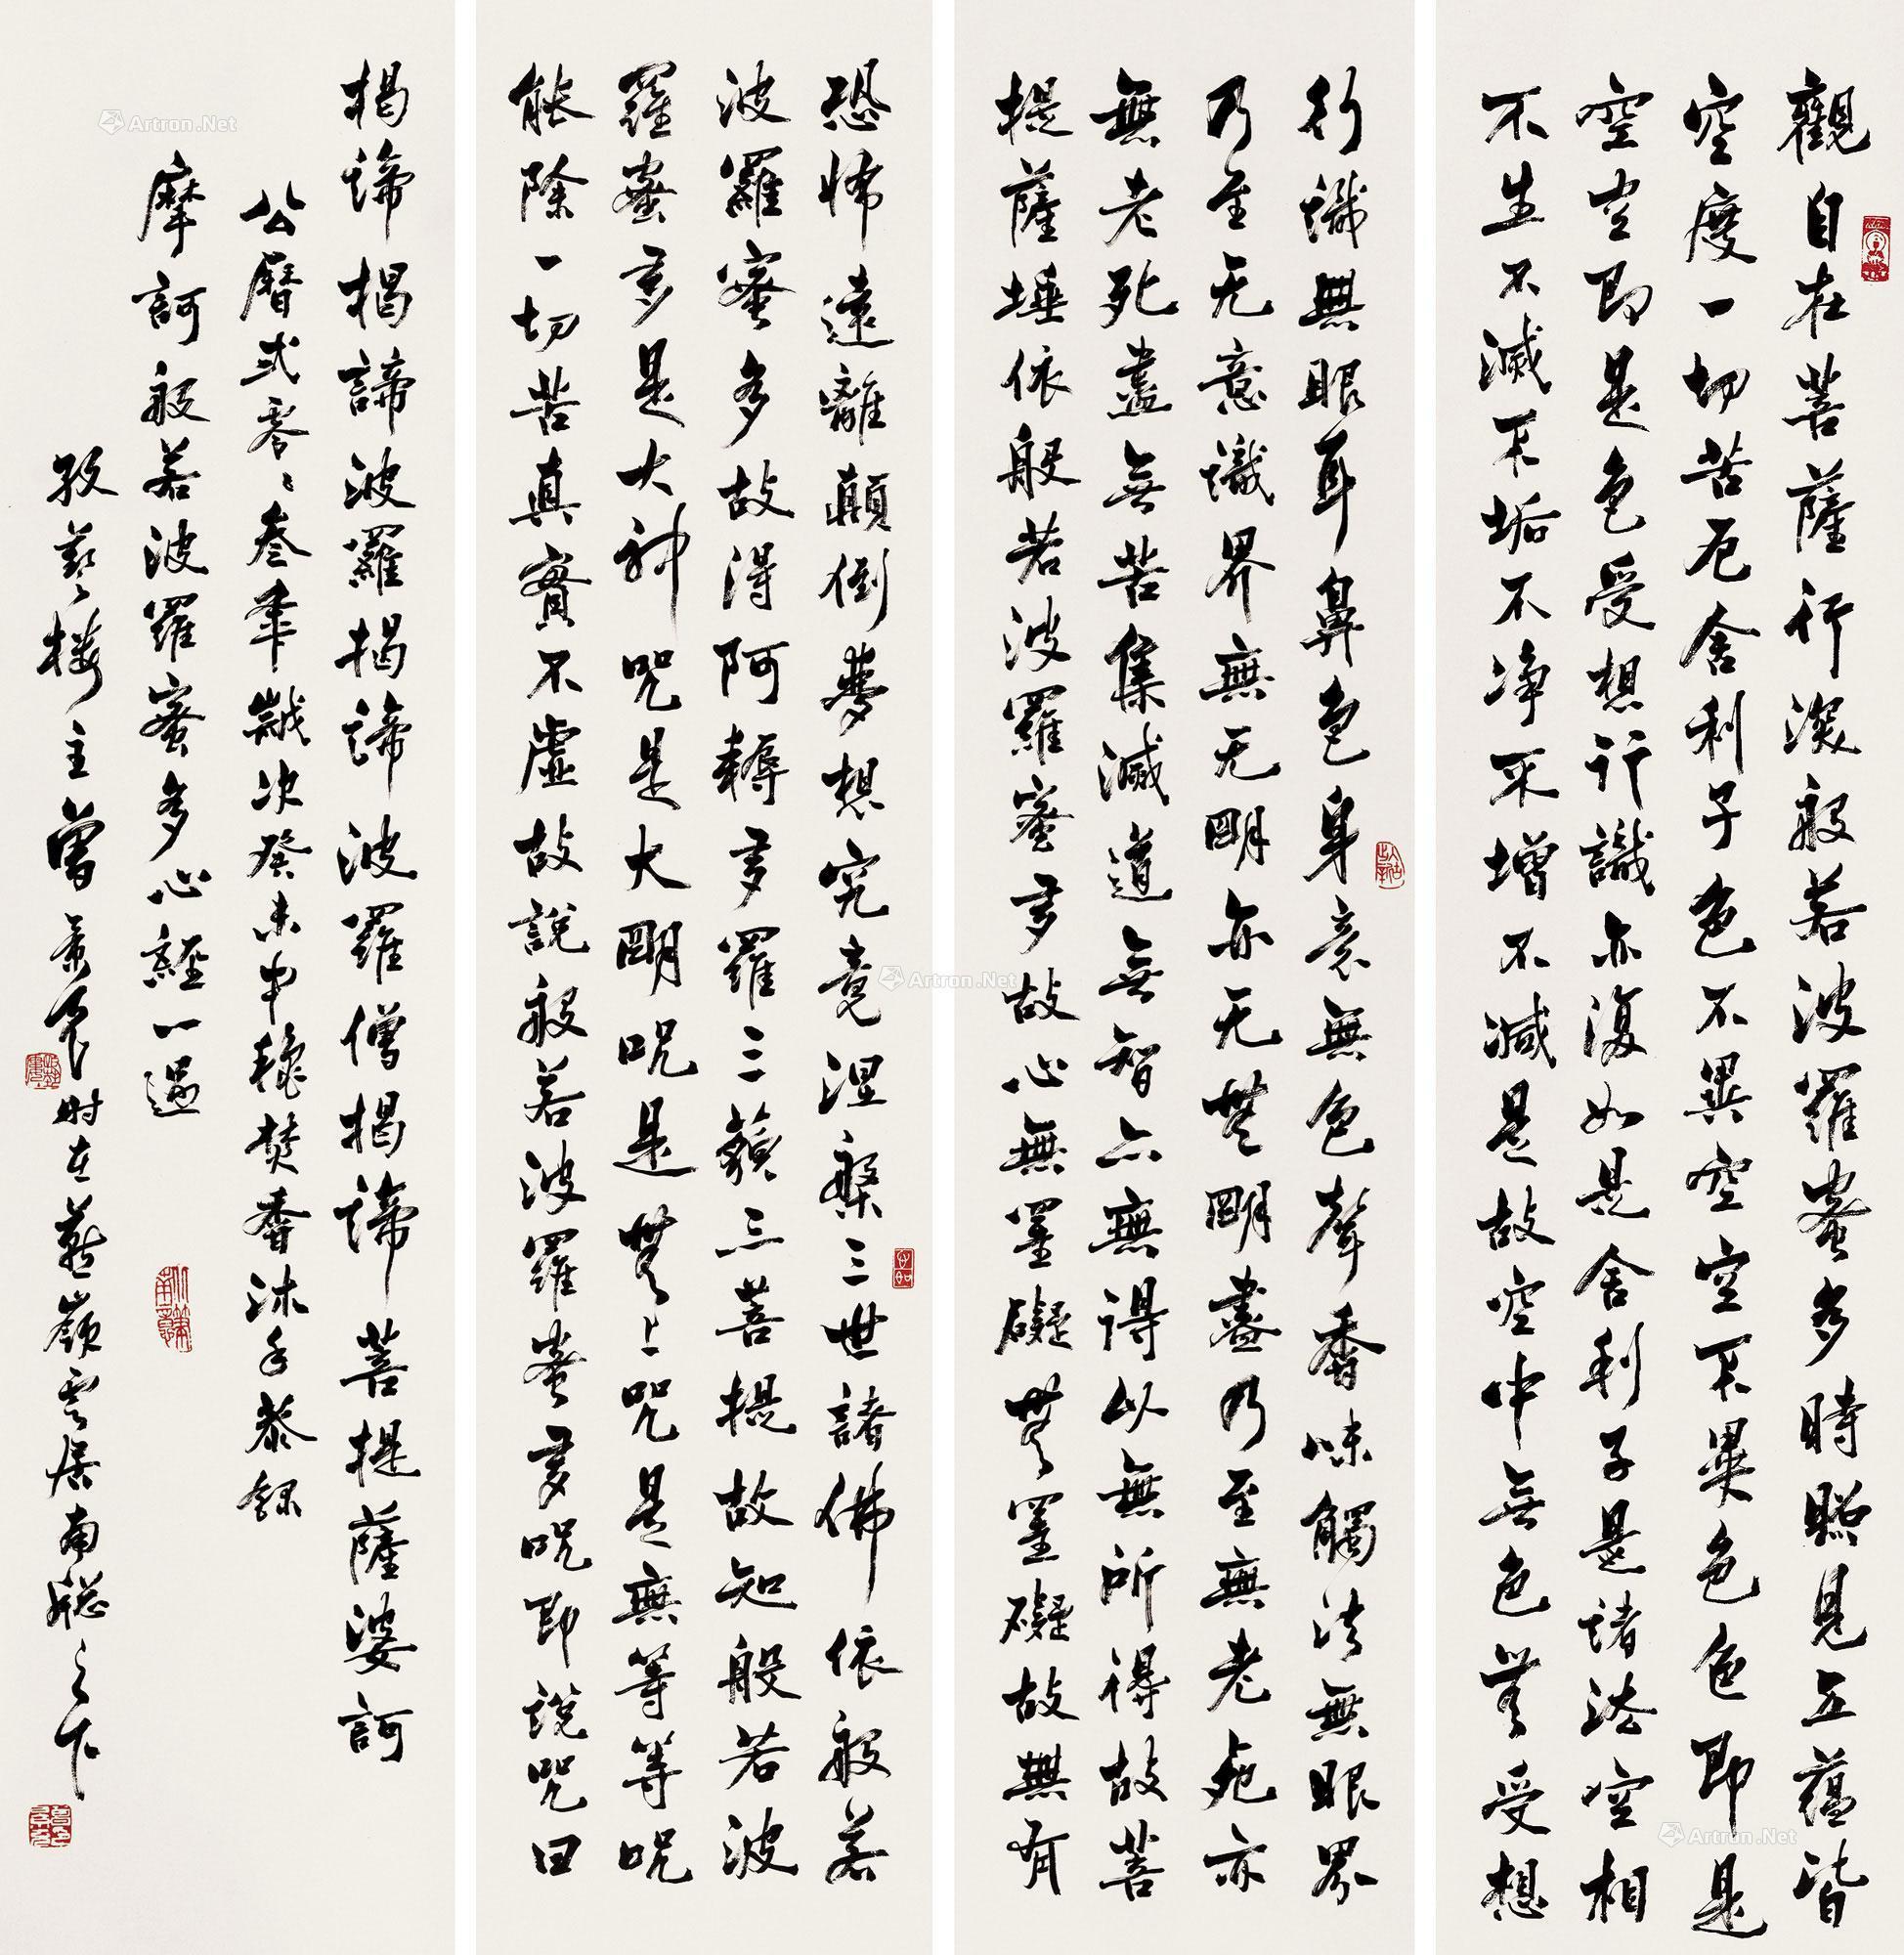 觀自在菩薩行深般若波羅蜜多時照見五蘊皆
空度一切苦厄舍利子色不異空空不異色色即是
空空即是色受想行識亦復如是舍利子是諸法空相
不生不滅不垢不净不增不減是故空中無色無受想
行識無眼耳鼻色身意無色聲香味觸法無眼界
乃至无意識界無无明亦无無明盡乃至無老死亦
無老死盡無苦集滅道無智亦無得以無所得故菩
提薩埵依般若波羅蜜多故心無罣礙無罣礙故無有
恐怖遠離顛倒夢想究竟涅槃三世諸佛依般若
波羅蜜多故得阿耨多羅三藐三菩提故知般若波
羅蜜多是大神咒是大明咒是無上咒是無等等咒
能除一切苦真實不虛故說般若波羅蜜多咒即說咒曰
揭諦揭諦波羅揭諦波羅僧揭諦菩提薩婆訶
公曆弍零零叁年歲次癸未中穐焚香沐手恭録
摩訶般若波羅蜜多心經一過
樓主曾景充时在燕嶺雲居南之下
Artron.Net
Artron.Net
Artron.Net